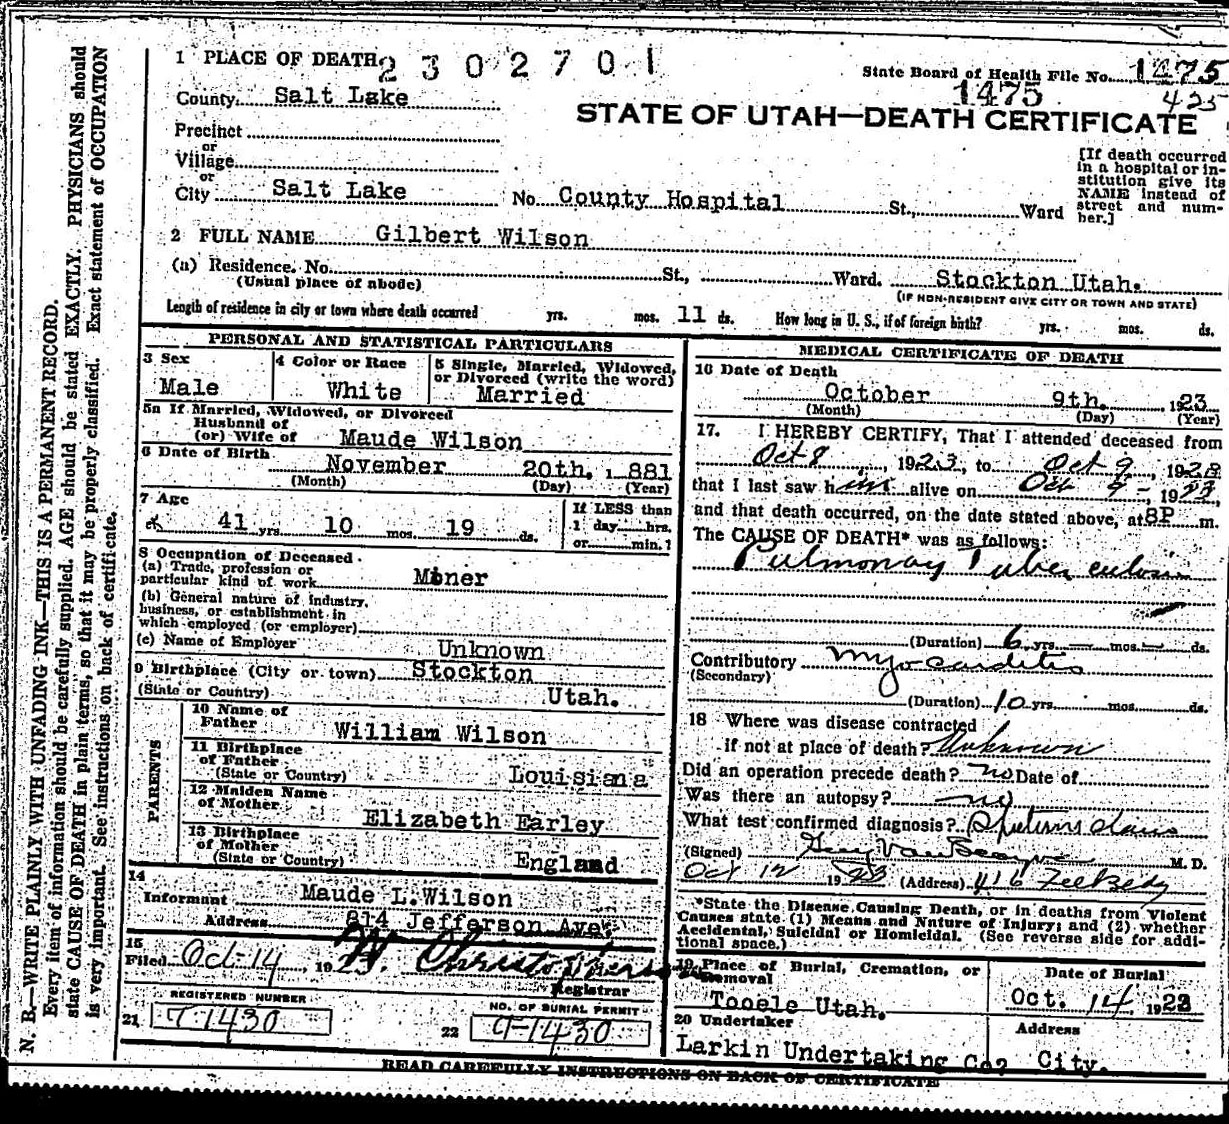 1 PLACE OF DEATH 2302701
State Board of Health File No. 1475
1475
425
County Salt Lake
STATE OF UTAH—DEATH CERTIFICATE
Precinct
or
Village
or
City Salt Lake No. County Hospital St., Ward
[If death occurred
in a hospital or in-
stitution give its
NAME instead of
street and num-
ber.]
2 FULL NAME Gilbert Wilson
(a) Residence. No. St., Ward. Stockton Utah.
(Usual place of abode) (IF NON-RESIDENT GIVE CITY OR TOWN AND STATE)
Length of residence in city or town where death occurred yrs. mos. 11 ds. How long in U. S., if of foreign birth? yrs. mos. ds.
PERSONAL AND STATISTICAL PARTICULARS
3 Sex
Male
4 Color or Race
White
5 Single, Married, Widowed,
or Divorced (write the word)
Married
5a If Married, Widowed, or Divorced
Husband of
(or) Wife of Maude Wilson
6 Date of Birth
November 20th, 1 881
(Month) (Day) (Year)
7 Age
41 yrs. 10 mos. 19 ds.
If LESS than
1 day hrs.
or min.?
8 Occupation of Deceased
(a) Trade, profession or
particular kind of work Miner
(b) General nature of industry,
business, or establishment in
which employed (or employer)
(c) Name of Employer Unknown
9 Birthplace (City or town) Stockton
(State or Country) Utah.
PARENTS
10 Name of
Father William Wilson
11 Birthplace
of Father
(State or Country) Louisiana
12 Maiden Name
of Mother Elizabeth Earley
13 Birthplace
of Mother
(State or Country) England
14
Informant Maude L.Wilson
Address 814 Jefferson Ave.
15
Filed Oct-14, 1923.
Registrar
REGISTERED NUMBER
21 T1430
NO. OF BURIAL PERMIT
22 T-1430
MEDICAL CERTIFICATE OF DEATH
16 Date of Death
October 9th. 1923
(Month) (Day) (Year)
17. I HEREBY CERTIFY, That I attended deceased from
Oct 8, 1923, to Oct 9, 1923
that I last saw him alive on Oct 9-, 1923
and that death occurred, on the date stated above, at 8P m.
The CAUSE OF DEATH* was as follows:
Pulmonary Tuberculosis
(Duration) 6 yrs. mos. ds.
Contributory Myocarditis
(Secondary)
(Duration) 10 yrs. mos. ds.
18 Where was disease contracted
if not at place of death? Unknown
Did an operation precede death? no Date of
Was there an autopsy? no
What test confirmed diagnosis?
(Signed) M. D.
Oct 12 1923 (Address) 416
*State the Disease Causing Death, or in deaths from Violent
Causes state (1) Means and Nature of Injury; and (2) whether
Accidental, Suicidal or Homicidal. (See reverse side for addi-
tional space.)
19 Place of Burial, Cremation, or
Removal
Tooele Utah.
Date of Burial
Oct. 14 1923
20 Undertaker
Larkin Undertaking Co?
Address
City.
READ CAREFULLY INSTRUCTIONS ON BACK OF CERTIFICATE
N. B.—WRITE PLAINLY WITH UNFADING INK—THIS IS A PERMANENT RECORD.
Every item of information should be carefully supplied. AGE should be stated EXACTLY. PHYSICIANS should
state CAUSE OF DEATH in plain terms, so that it may be properly classified. Exact statement of OCCUPATION
is very important. See instructions on back of certificate.